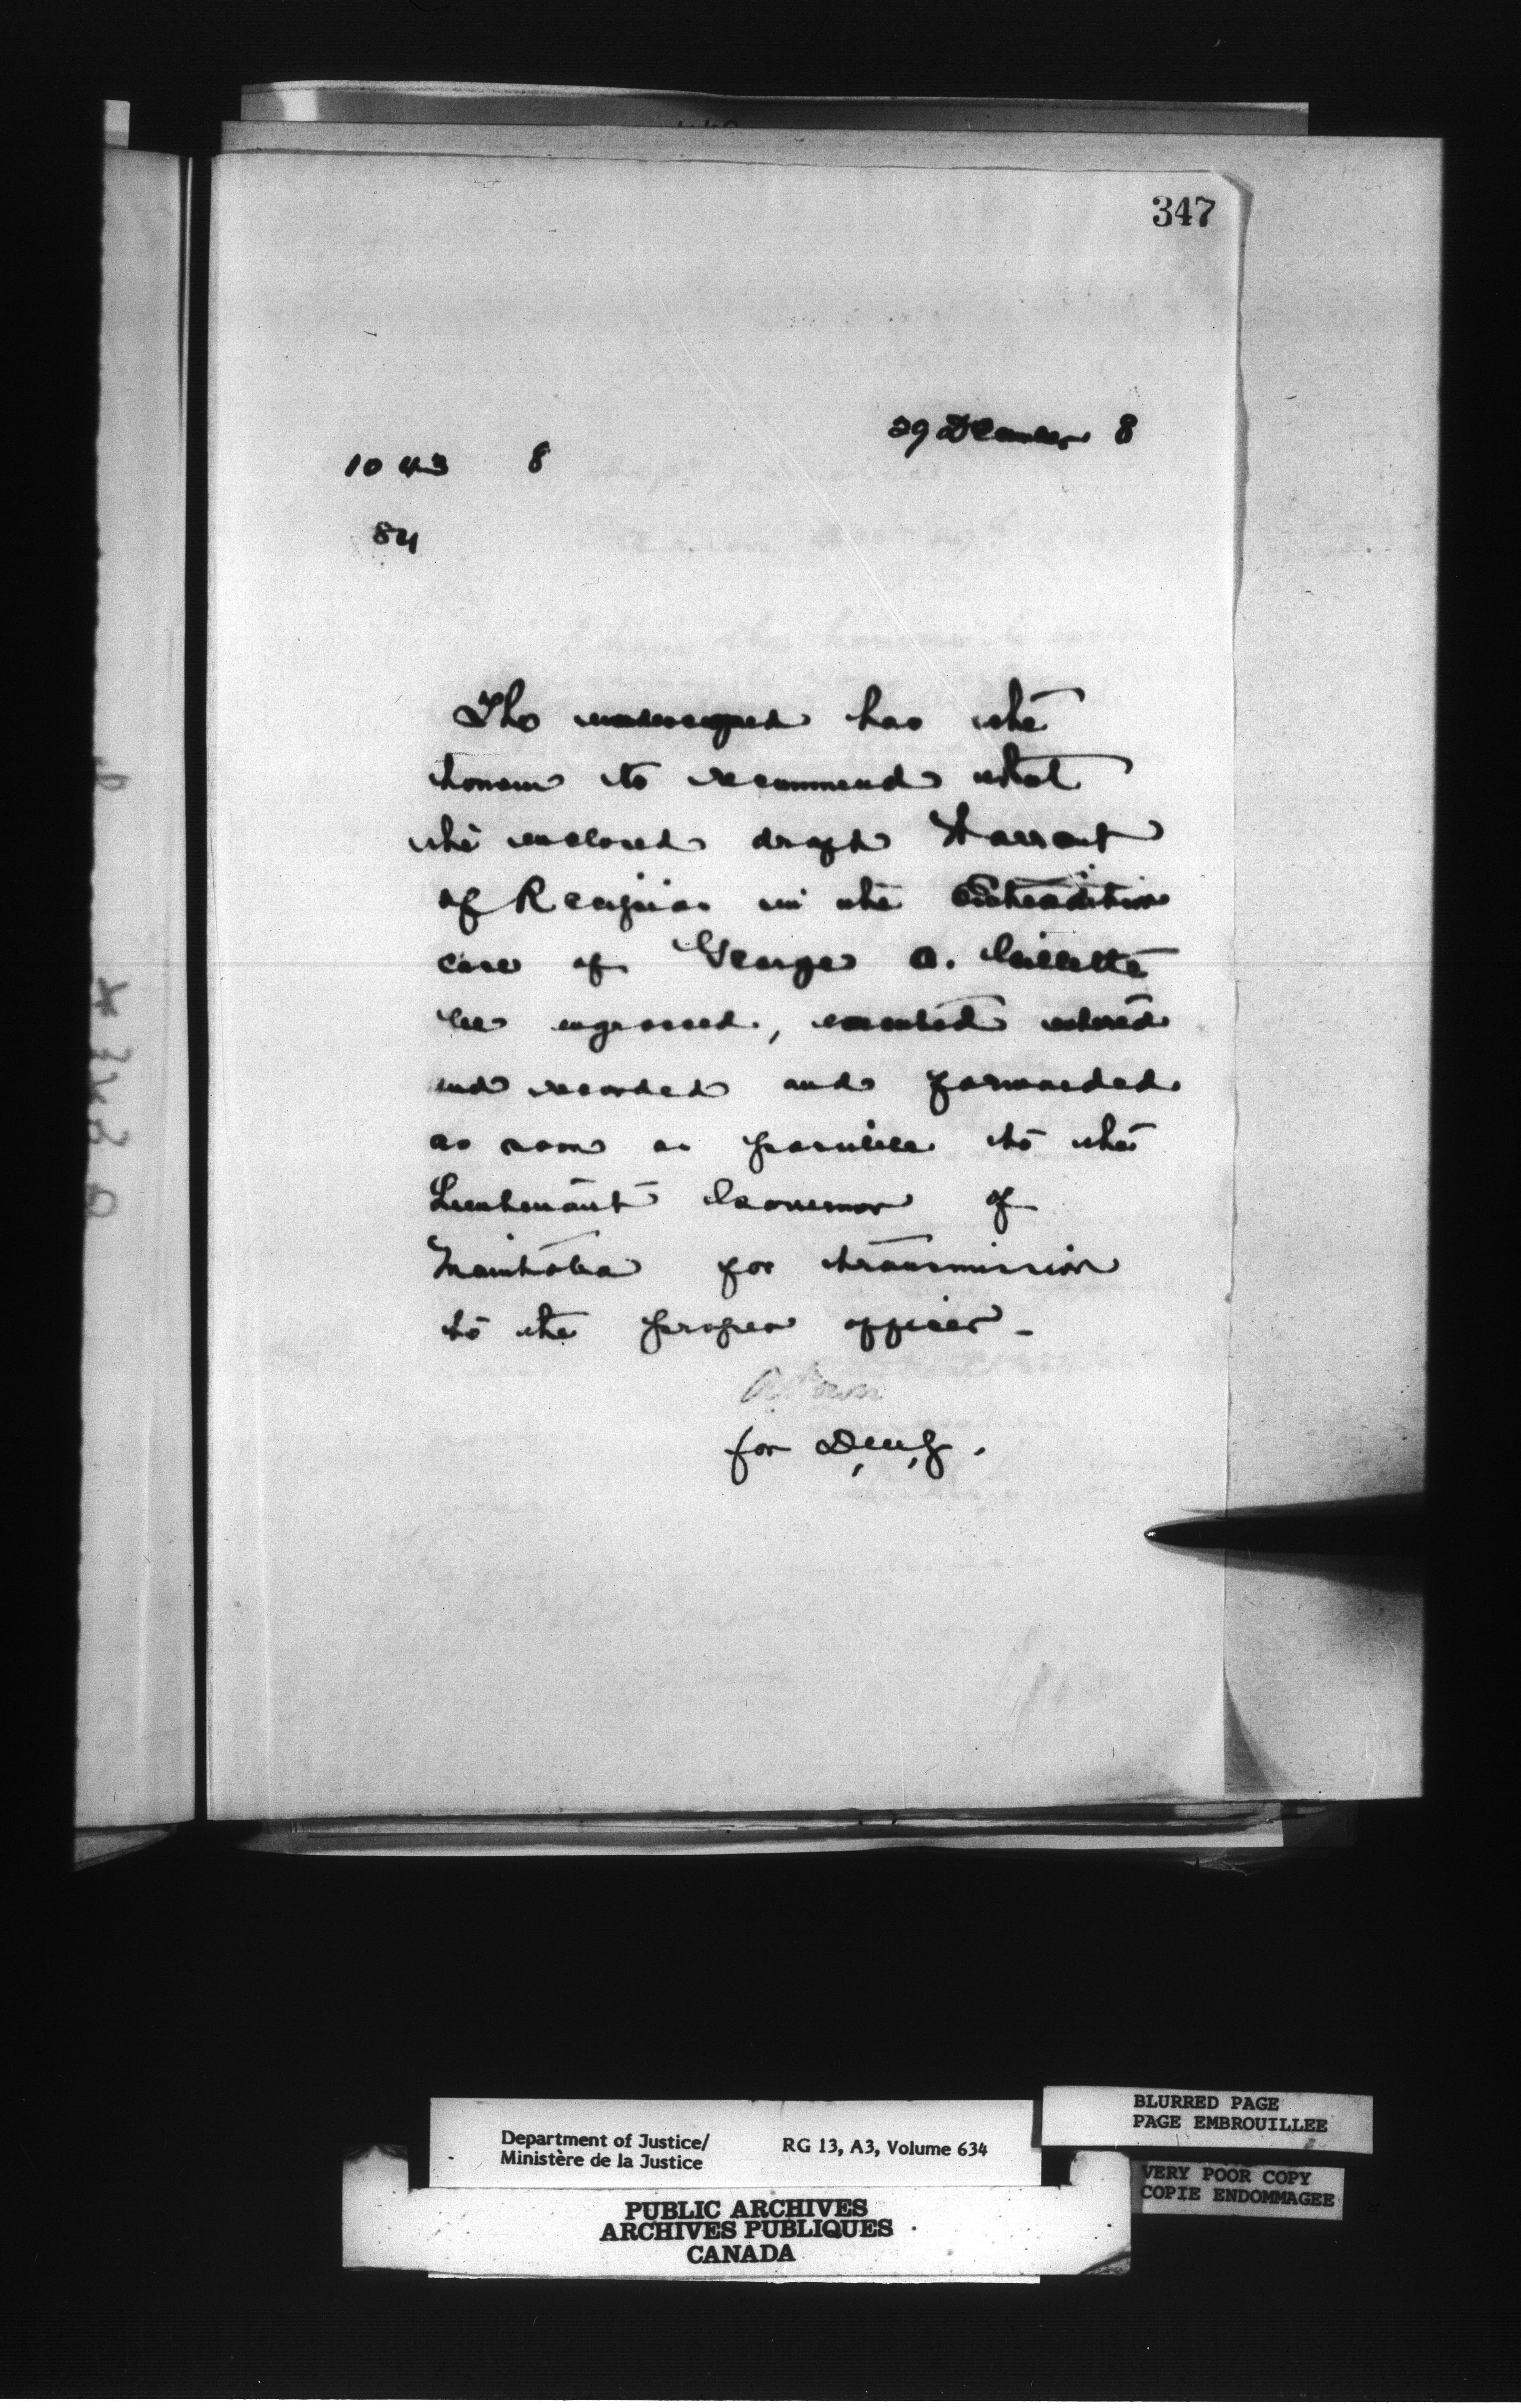 347
29 December 8
1043 8
84
The undersigned has the
honour to recommend that
the enclosed draft Warrant
of Recipias in the Extradition
case of George A. Gillette
be engrossed, executed entered
and recorded and forwarded
as soon as possible to the
Lieutenant Governor of
Manitoba for transmission
to the proper officer -
for D, M, J.
BLURRED PAGE
PAGE EMBROUILLEE
Department of Justice/
Ministère de la Justice
RG 13, A3, Volume 634
VERY POOR COPY
COPIE ENDOMMAGEE
PUBLIC ARCHIVES
ARCHIVES PUBLIQUES
CANADA